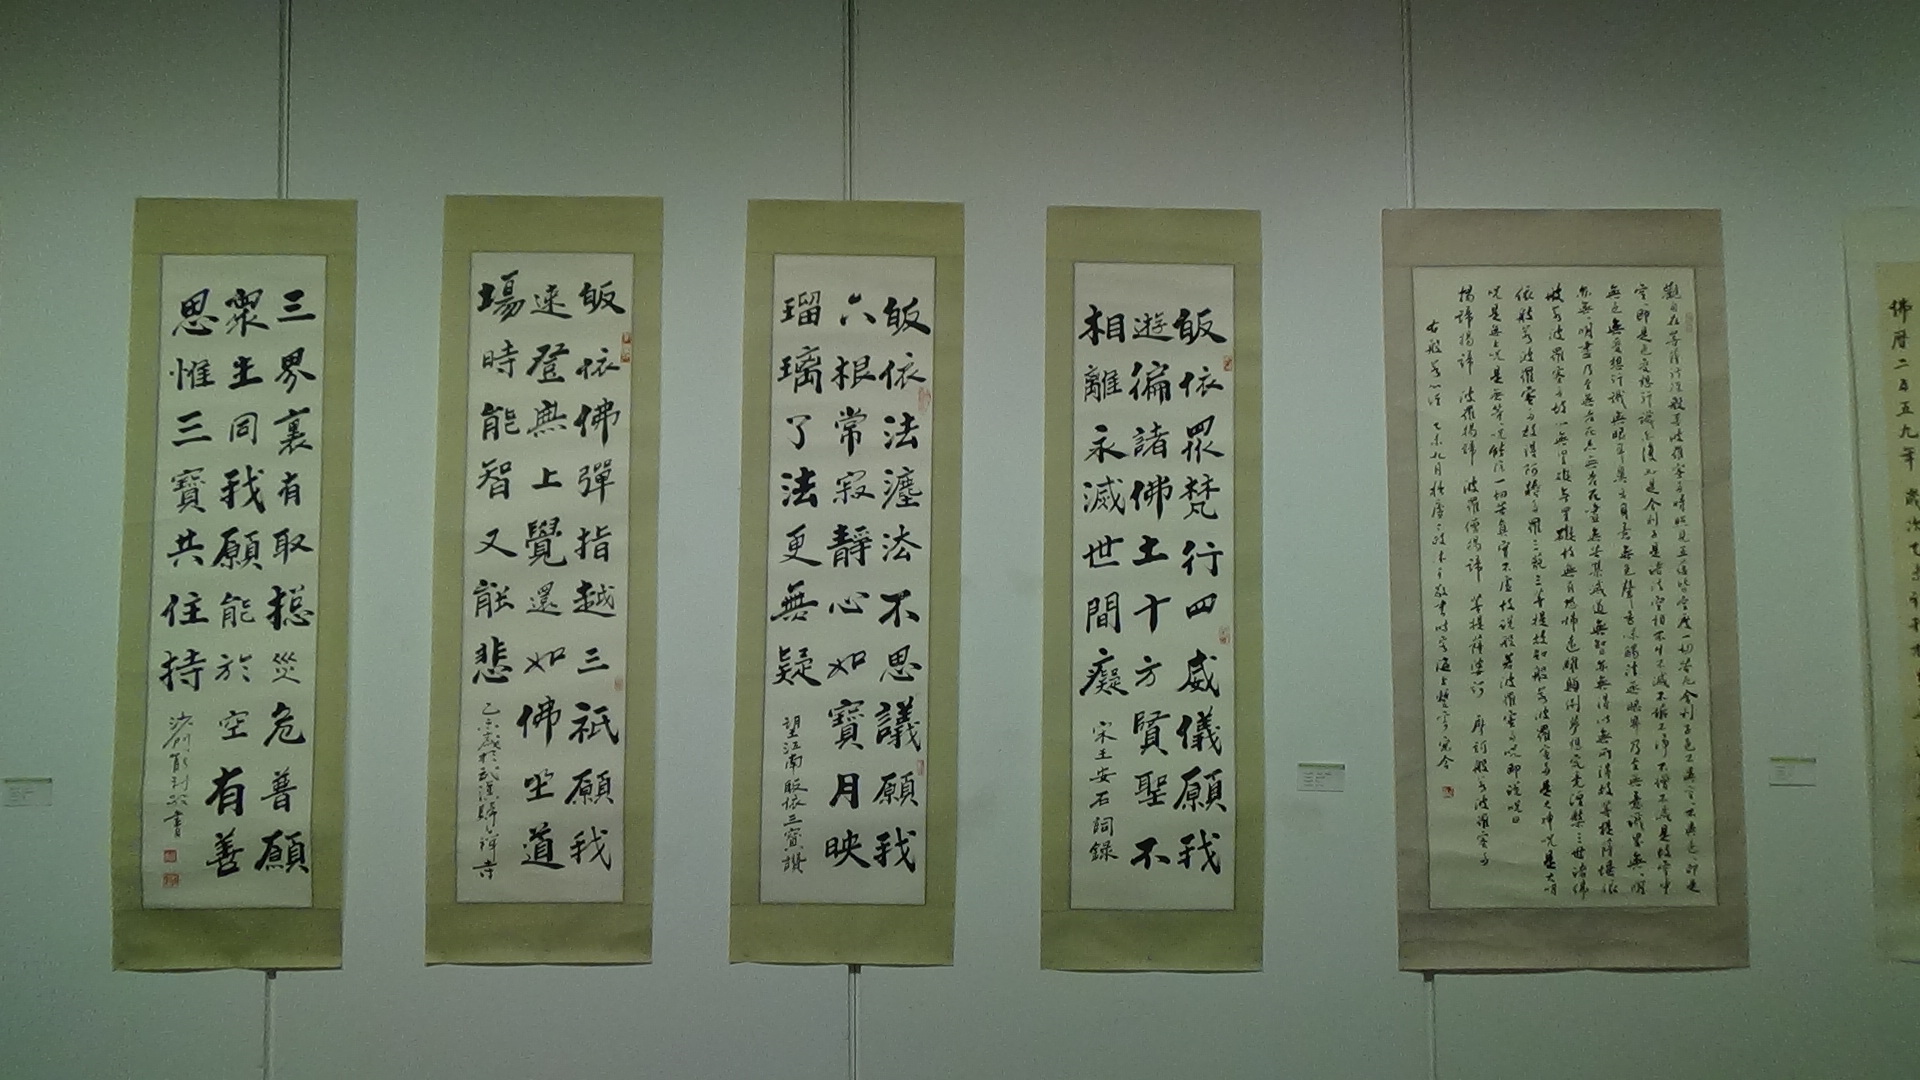 佛曆二五五九年 歲次乙未
觀自在菩薩行深般若波羅蜜多時照見五蘊皆空度一切苦厄舍利子色不異空空不異色色即是
空空即是色受想行識亦復如是舍利子是諸法空相不生不滅不垢不淨不增不減是故空中
無色無受想行識無眼耳鼻舌身意無色聲香味觸法無眼界乃至無意識界無無明
亦無無明盡乃至無老死亦無老死盡無苦集滅道無智亦無得以無所得故菩提薩埵依
般若波羅蜜多故心無罣礙無罣礙故無有恐怖遠離顛倒夢想究竟涅槃三世諸佛
依般若波羅蜜多故得阿耨多羅三藐三菩提故知般若波羅蜜多是大神咒是大明
咒是無上咒是無等等咒能除一切苦真實不虛故說般若波羅蜜多咒即說咒曰
揭諦揭諦 波羅揭諦 波羅僧揭諦 菩提薩婆訶 摩訶般若波羅蜜多
右般若心經 乙未九月
皈依眾梵行四威儀願我
遊徧諸佛土十方賢聖不
相離永滅世間癡 宋王安石詞錄
皈依法灋法不思議願我
六根常寂靜心如寶月映
瑠璃了法更無疑 望江南皈依三寶讚
皈依佛彈指越三祇願我
速登無上覺還如佛坐道
場時能智又能悲 乙未歲於武漢歸元禪寺
三界裏有取捴災危普願
眾生同我願能於空有善
思惟三寶共住持 沙門 書